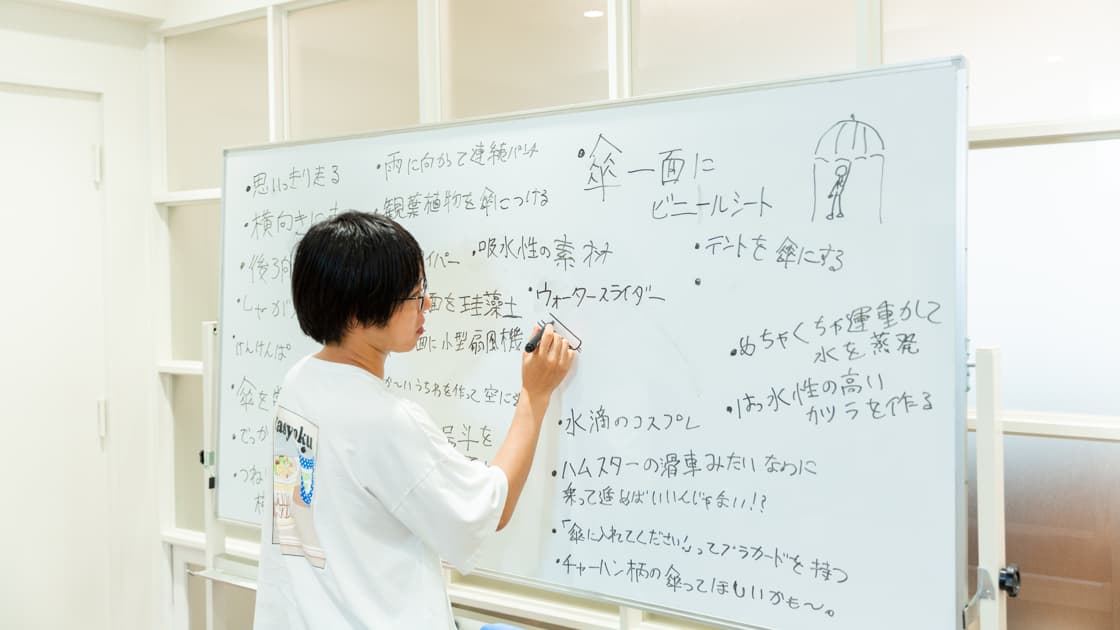 ・思いっきり走る
・横向きに
・後ろ向
しゃが
けんけんぱ
・傘を
・でっか
・つね
・雨に向かって連続パンチ
・観葉植物を傘につける
イパー
面を珪藻土
面に小型扇風機
いうちわを作って空に
・吸水性の素材
・ウォータースライダー
・水滴のコスプレ
・ハムスターの滑車みたいなわに
乗って進めばいいんじゃない!?
・「傘に入れてください!」ってプラカードを持つ
・チャーハン柄の傘ってほしいかも〜。
・傘一面に
ビニールシート
・テントを傘にする
・
・めちゃくちゃ運動して
水を蒸発
・はっ水性の高い
カツラを作る
asyoku